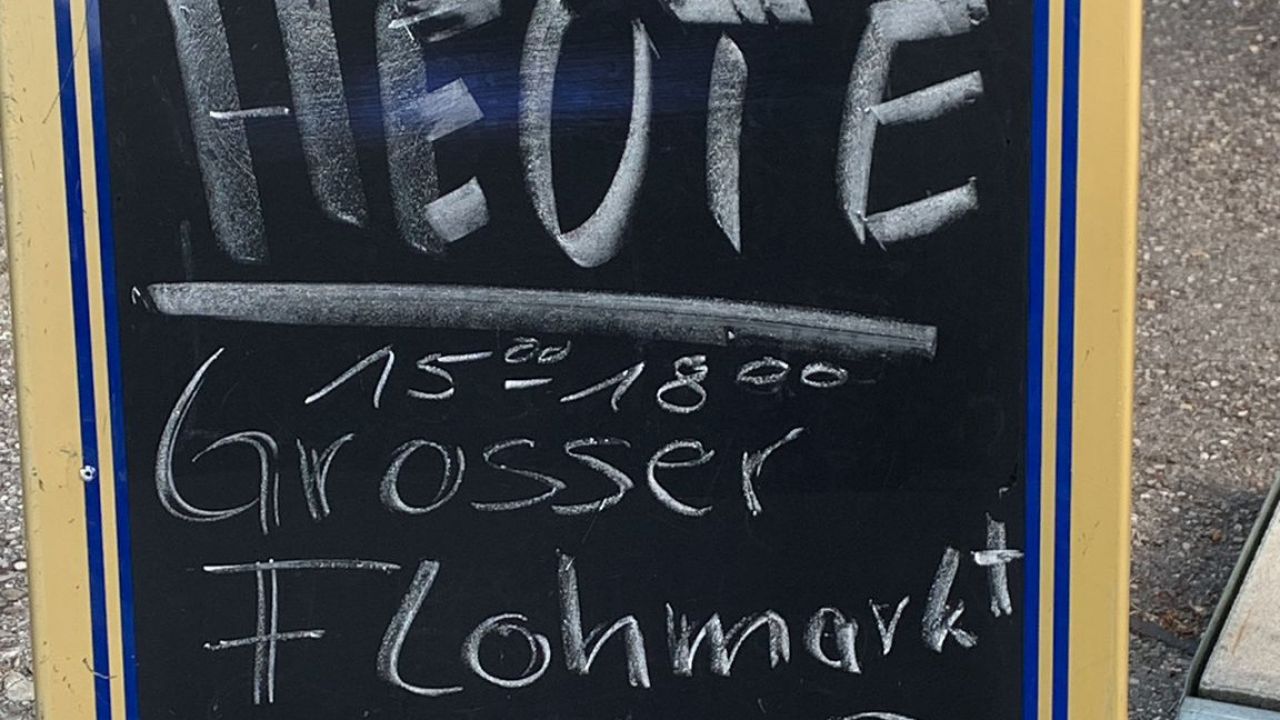 HEUTE
15⁰⁰-18⁰⁰
Grosser
Flohmarkt